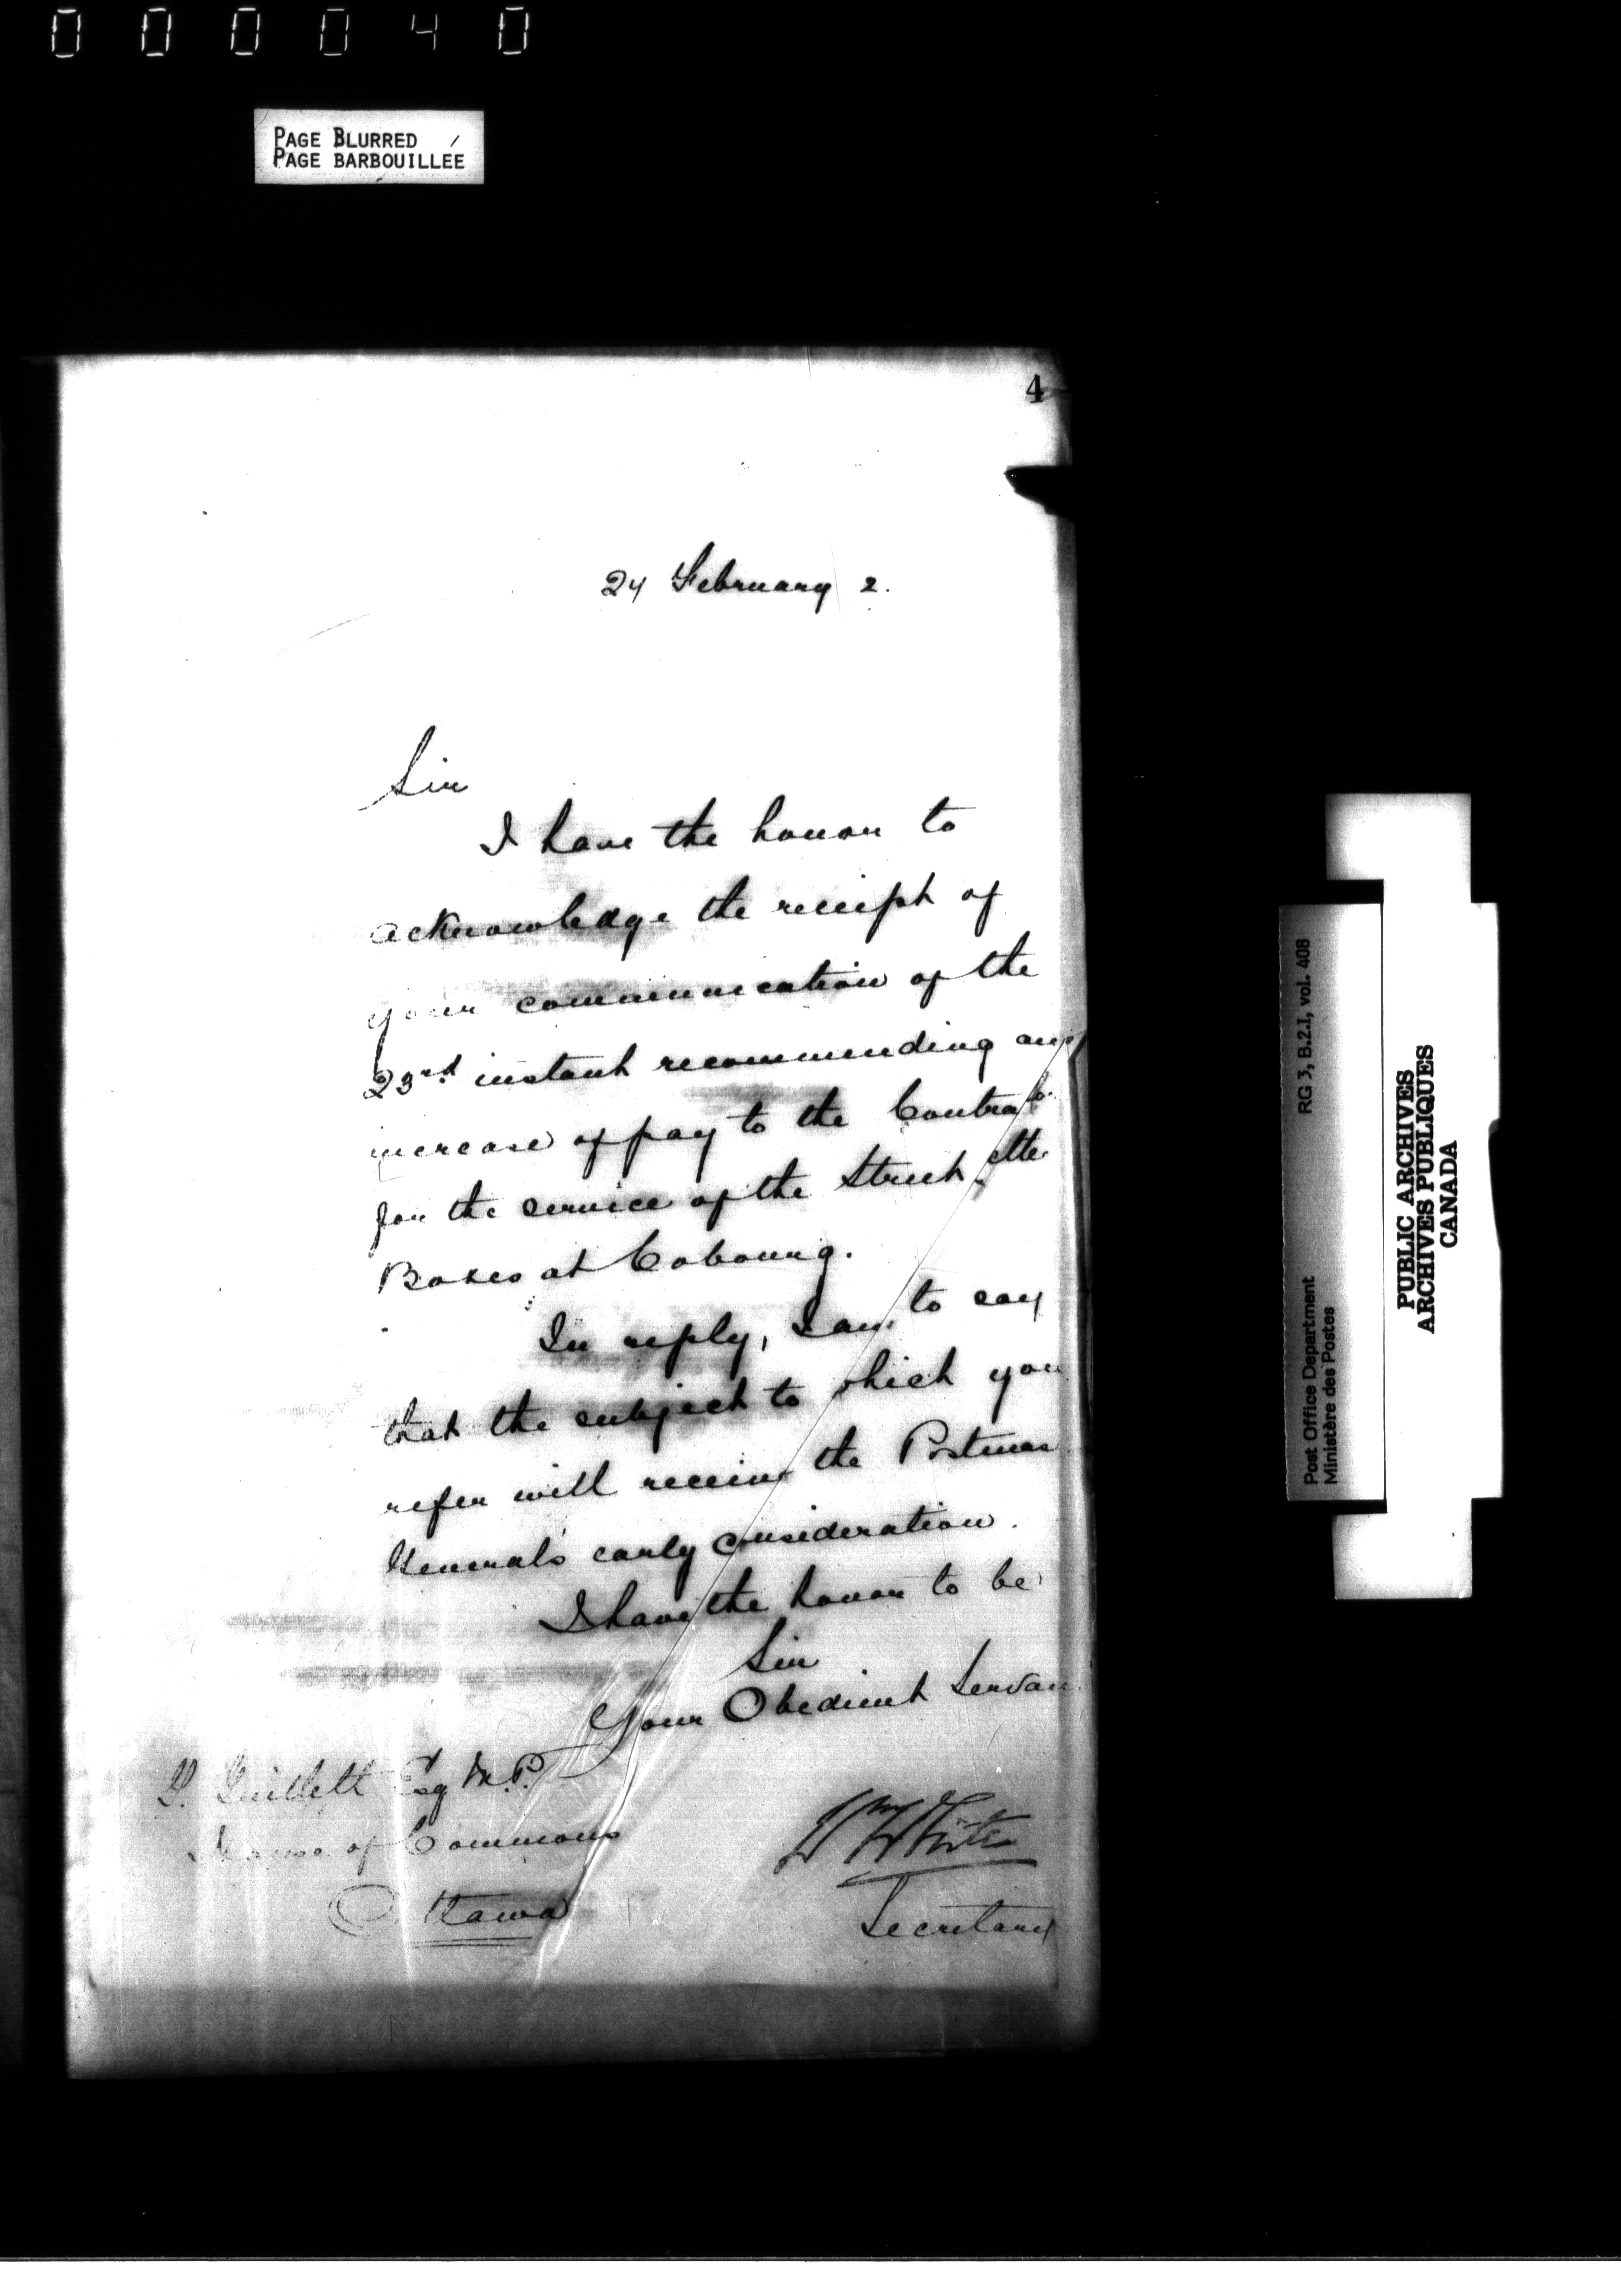 000040
PAGE BLURRED
PAGE BARBOUILLÉE
4
24 February 2.
Sir
I have the honor to
acknowledge the receipt of
your communication of the
23rd. instant recommending any
increase of pay to the Contrac
for the service of the Street etter
Boxes at Cobourg.
In reply, I am to say
that the subject to which you
refer will receive the Postmas
General's early consideration.
I have the honor to be
Sir
Your Obedient Servan
G. Guillett Esq M.P.
House of Commons
Ottawa
Wm White
Secretary
Post Office Department RG 3, B.2.I, vol. 408
Ministère des Postes
PUBLIC ARCHIVES
ARCHIVES PUBLIQUES
CANADA